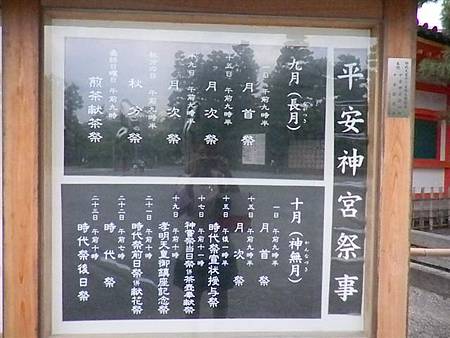 平安神宮祭事
九月（長月）
一日 午前九時半
月首祭
十五日 午前九時半
月次祭
十九日 午前九時半
月次祭
秋分の日 午前九時半
秋分祭
最終日曜日 午前九時
煎茶献茶祭
十月（神無月）
かんなづき
一日 午前九時半
月首祭
十五日 午前九時半
月次祭
十五日 午後一時半
時代祭宣状授与祭
十七日 午前十一時
十九日 午前十時
孝明天皇御鎮座記念祭
二十一日 午前十時
時代祭前日祭併献花祭
二十二日 午前七時
時代祭
二十三日 午前十時
時代祭後日祭